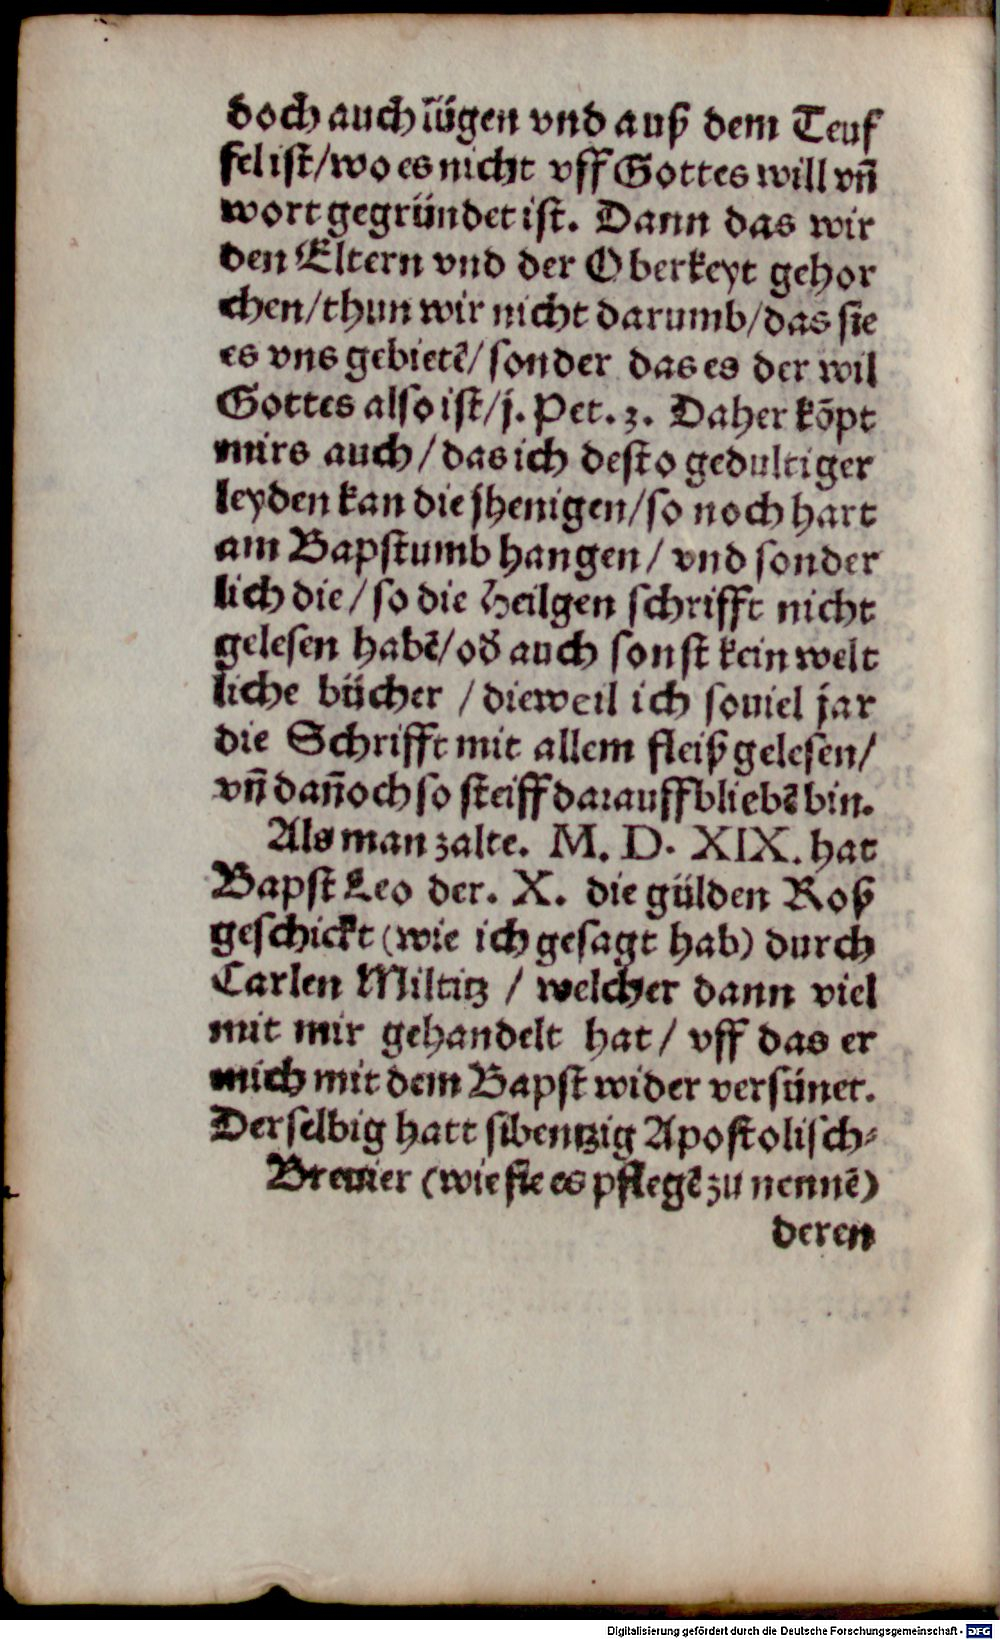 doch auch lügen vnd auß dem Teuf
fel ist/wo es nicht vff Gottes will vñ
wort gegründet ist. Dann das wir
den Eltern vnd der Oberkeyt gehor
chen/thun wir nicht darumb/das sie
es vns gebietẽ/sonder das es der wil
Gottes also ist/j. Pet. 3. Daher kõpt
mirs auch/das ich desto gedultiger
leyden kan die jhenigen/so noch hart
am Bapstumb hangen/ vnd sonder
lich die/so die Heilgen schrifft nicht
gelesen habẽ/od̃ auch sonst kein welt
liche bücher /dieweil ich souiel jar
die Schrifft mit allem fleiß gelesen/
vñ dañoch so steiff darauff bliebẽ bin.
Als man zalte. M. D. XIX. hat
Bapst Leo der. X. die gülden Roß
geschickt (wie ich gesagt hab) durch
Carlen Miltitz / welcher dann viel
mit mir gehandelt hat/ vff das er
mich mit dem Bapst wider versünet.
Derselbig hatt sibentzig Apostolisch⸗
Breuier (wie sie es pflegẽ zu nennẽ)
deren
Digitalisierung gefördert durch die Deutsche Forschungsgemeinschaft - DFG